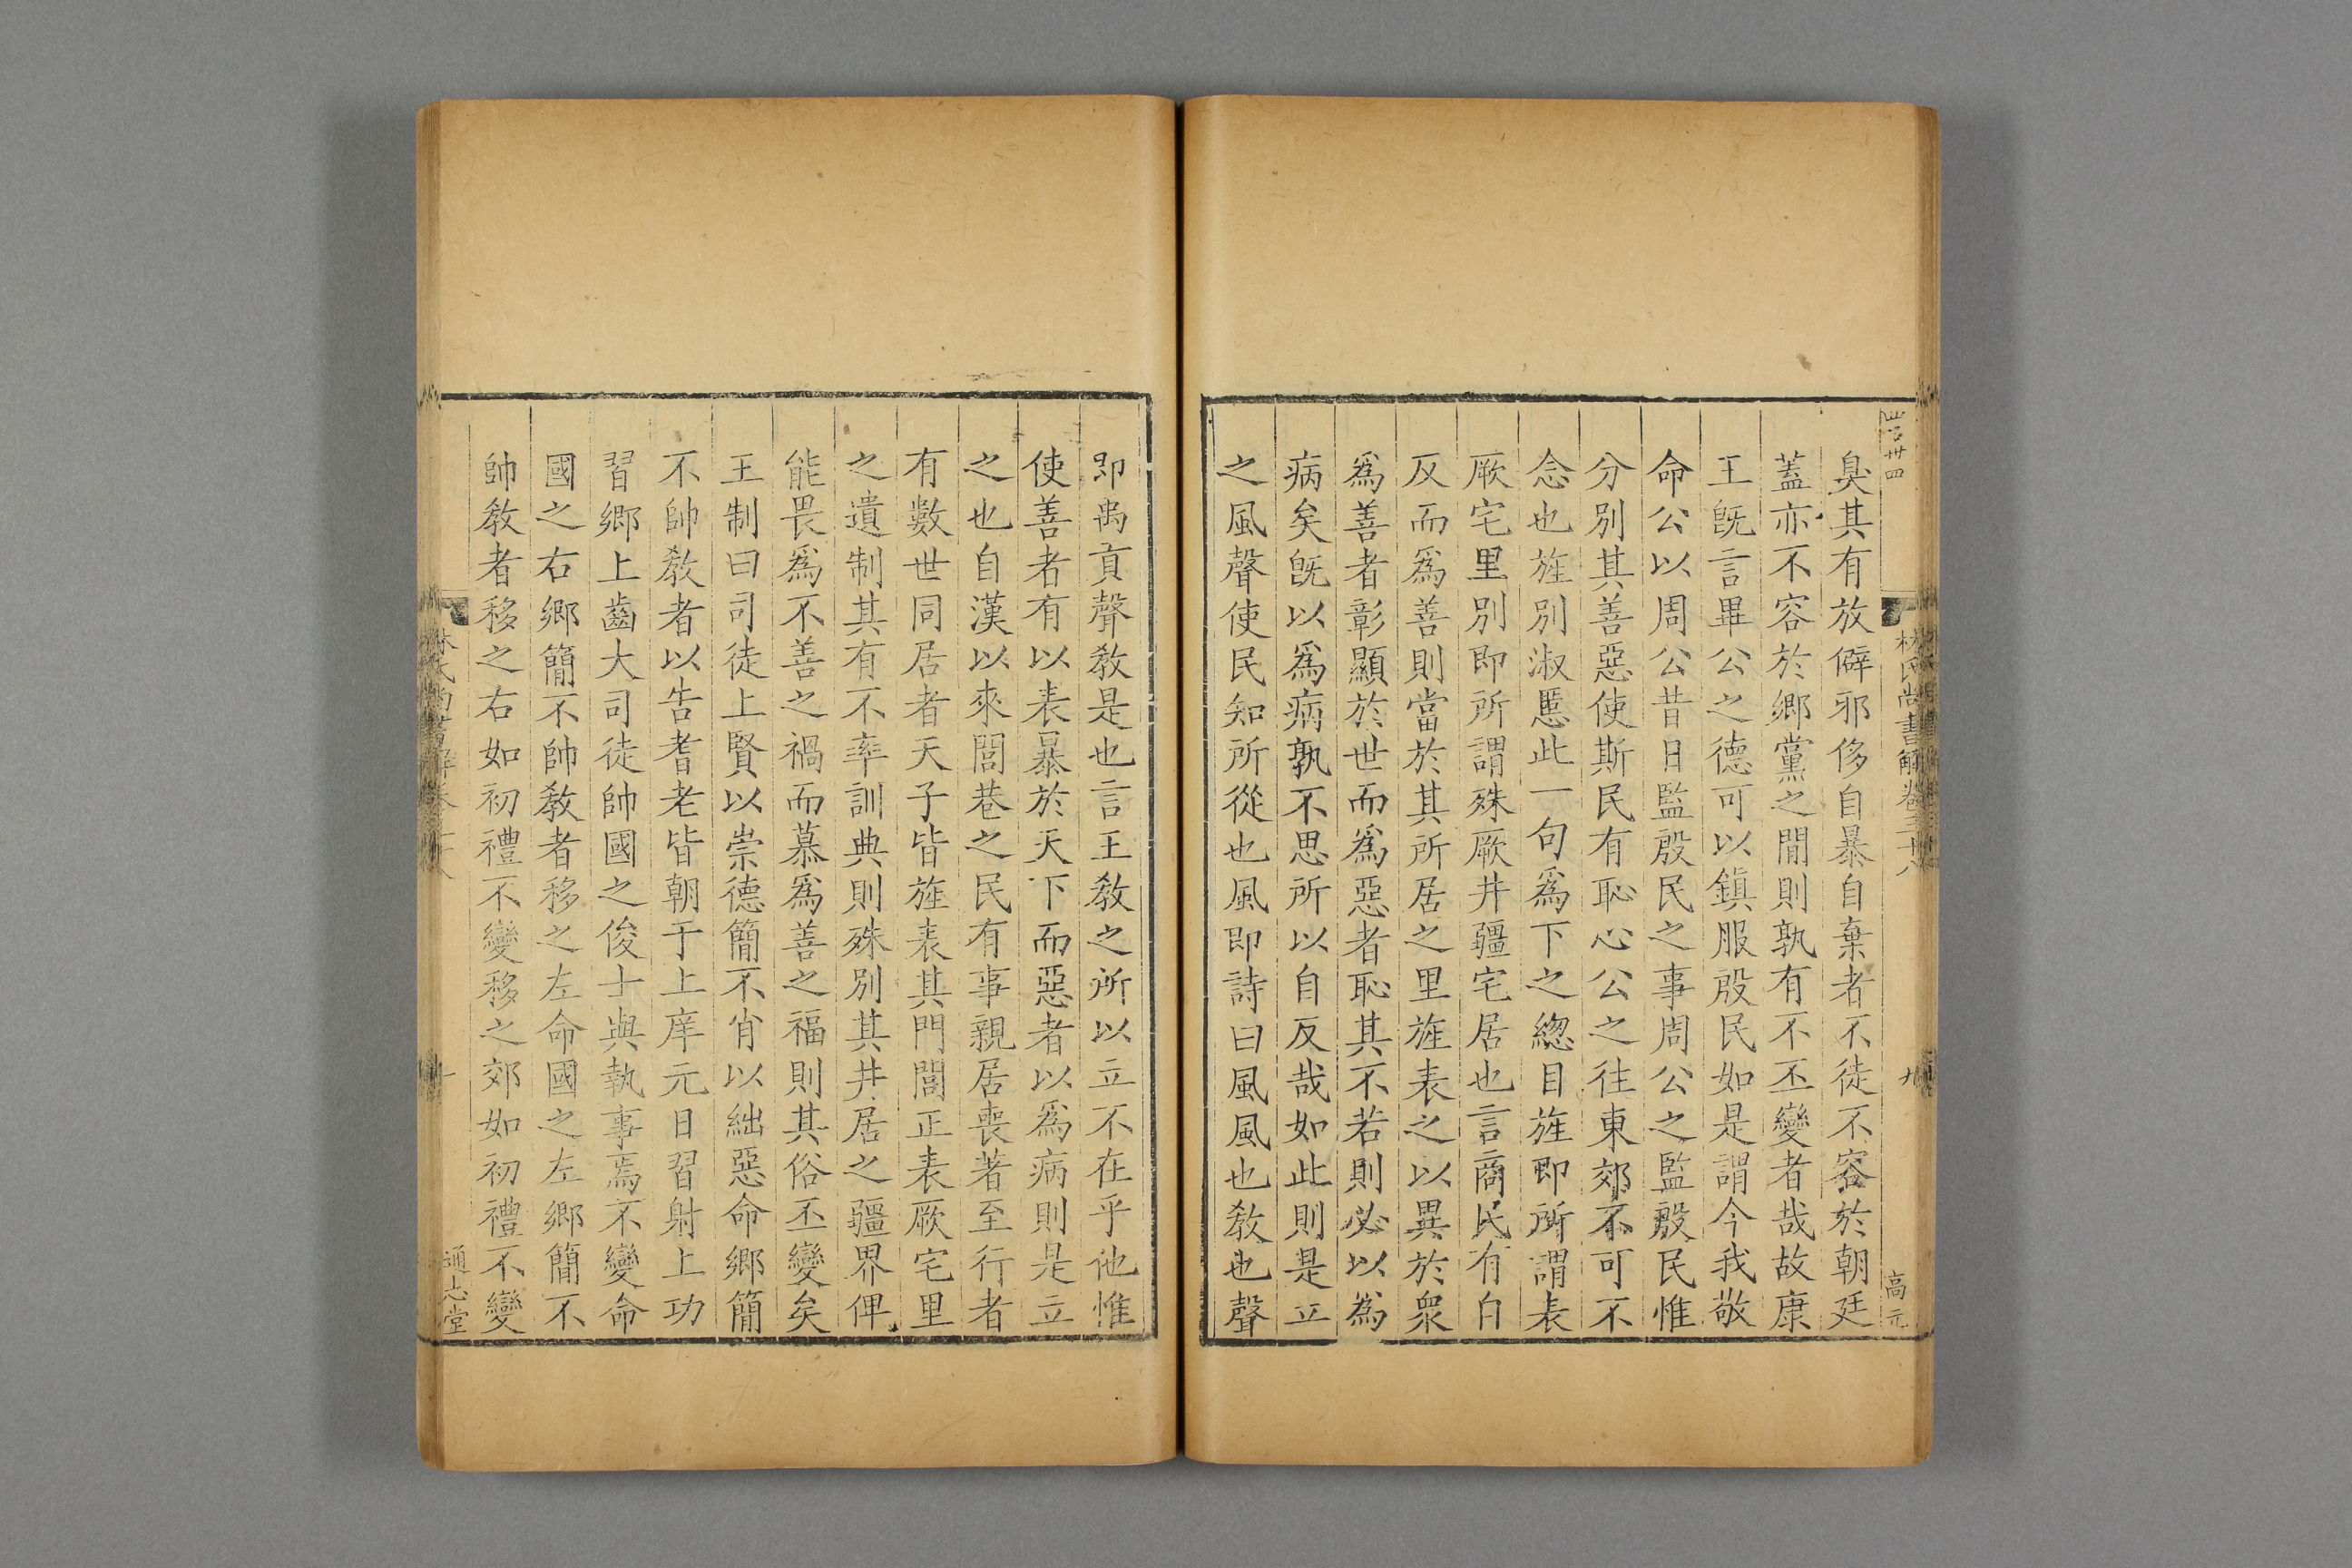 林氏尚書解卷三十八
九
高元
臭其有放僻邪侈自暴自棄者不徒不容於朝廷
蓋亦不容於鄉黨之間則孰有不丕變者哉故康
王旣言畢公之德可以鎮服殷民如是謂今我敬
命公以周公昔日監殷民之事周公之監殷民惟
分別其善惡使斯民有恥心公之往東郊不可不
念也旌別淑慝此一句為下之緫目旌即所謂表
厥宅里別即所謂殊厥井疆宅居也言商民有自
反而為善則當於其所居之里旌表之以異於衆
為善者彰顯於世而為惡者恥其不若則必以為
病矣旣以為病孰不思所以自反哉如此則是立
之風聲使民知所從也風即詩曰風風也敎也聲
即禹貢聲敎是也言王敎之所以立不在乎他惟
使善者有以表暴於天下而惡者以為病則是立
之也自漢以來閭巷之民有事親居喪著至行者
有數世同居者天子皆旌表其門閭正表厥宅里
之遺制其有不率訓典則殊別其井居之疆界俾
能畏為不善之禍而慕為善之福則其俗丕變矣
王制曰司徒上賢以崇德簡不肖以絀惡命鄉簡
不帥敎者以告耆老皆朝于上庠元日習射上功
習鄉上齒大司徒帥國之俊士與執事焉不變命
國之右鄉簡不帥敎者移之左命國之左鄉簡不
帥敎者移之右如初禮不變移之郊如初禮不變
通志堂